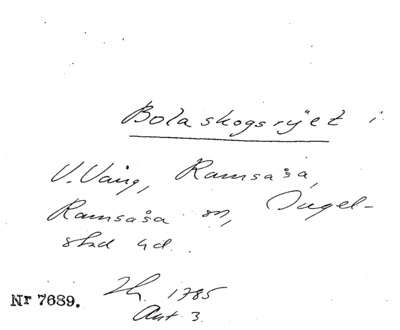 Bolaskogsryet i
V. Vång, Ramsåsa,
Ramsåsa sn, Ingel-
stad hd.
Nr 7689.
Lh. 1785
Akt 3.